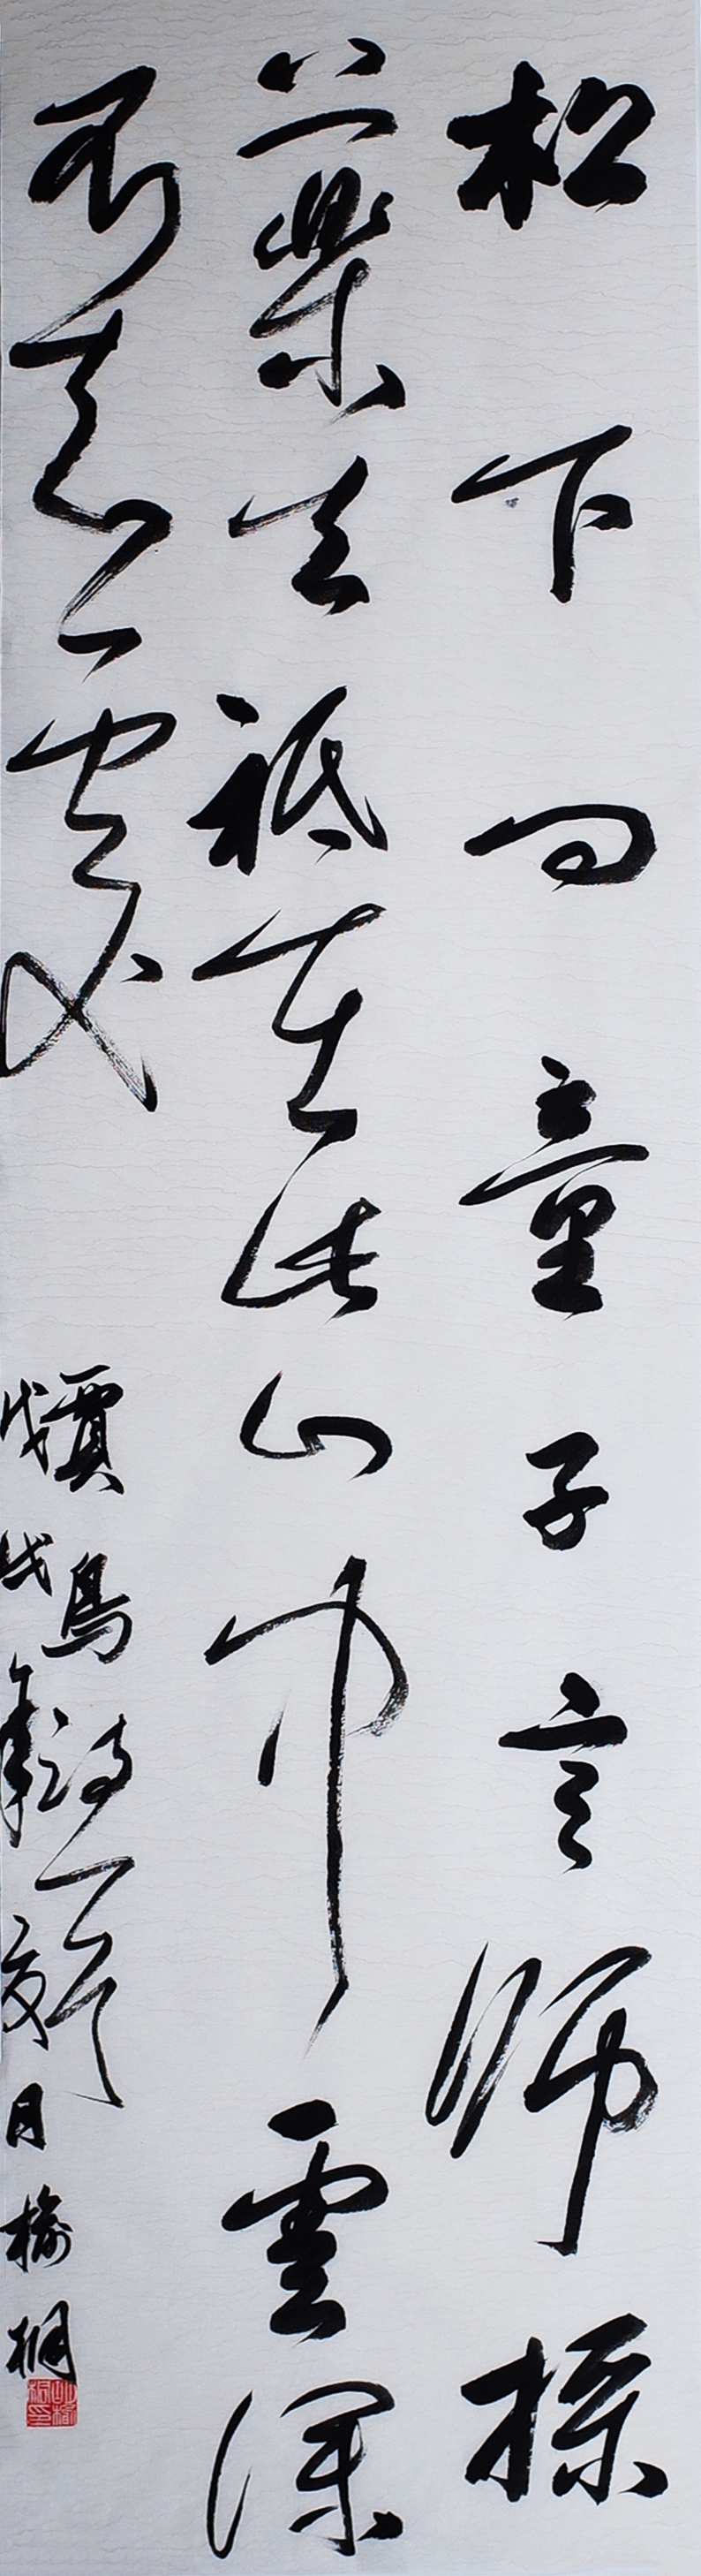 松下問童子言師採
藥去祗在此山中雲深
不知處
賈島詩一首
戊戌年夏月榆桐